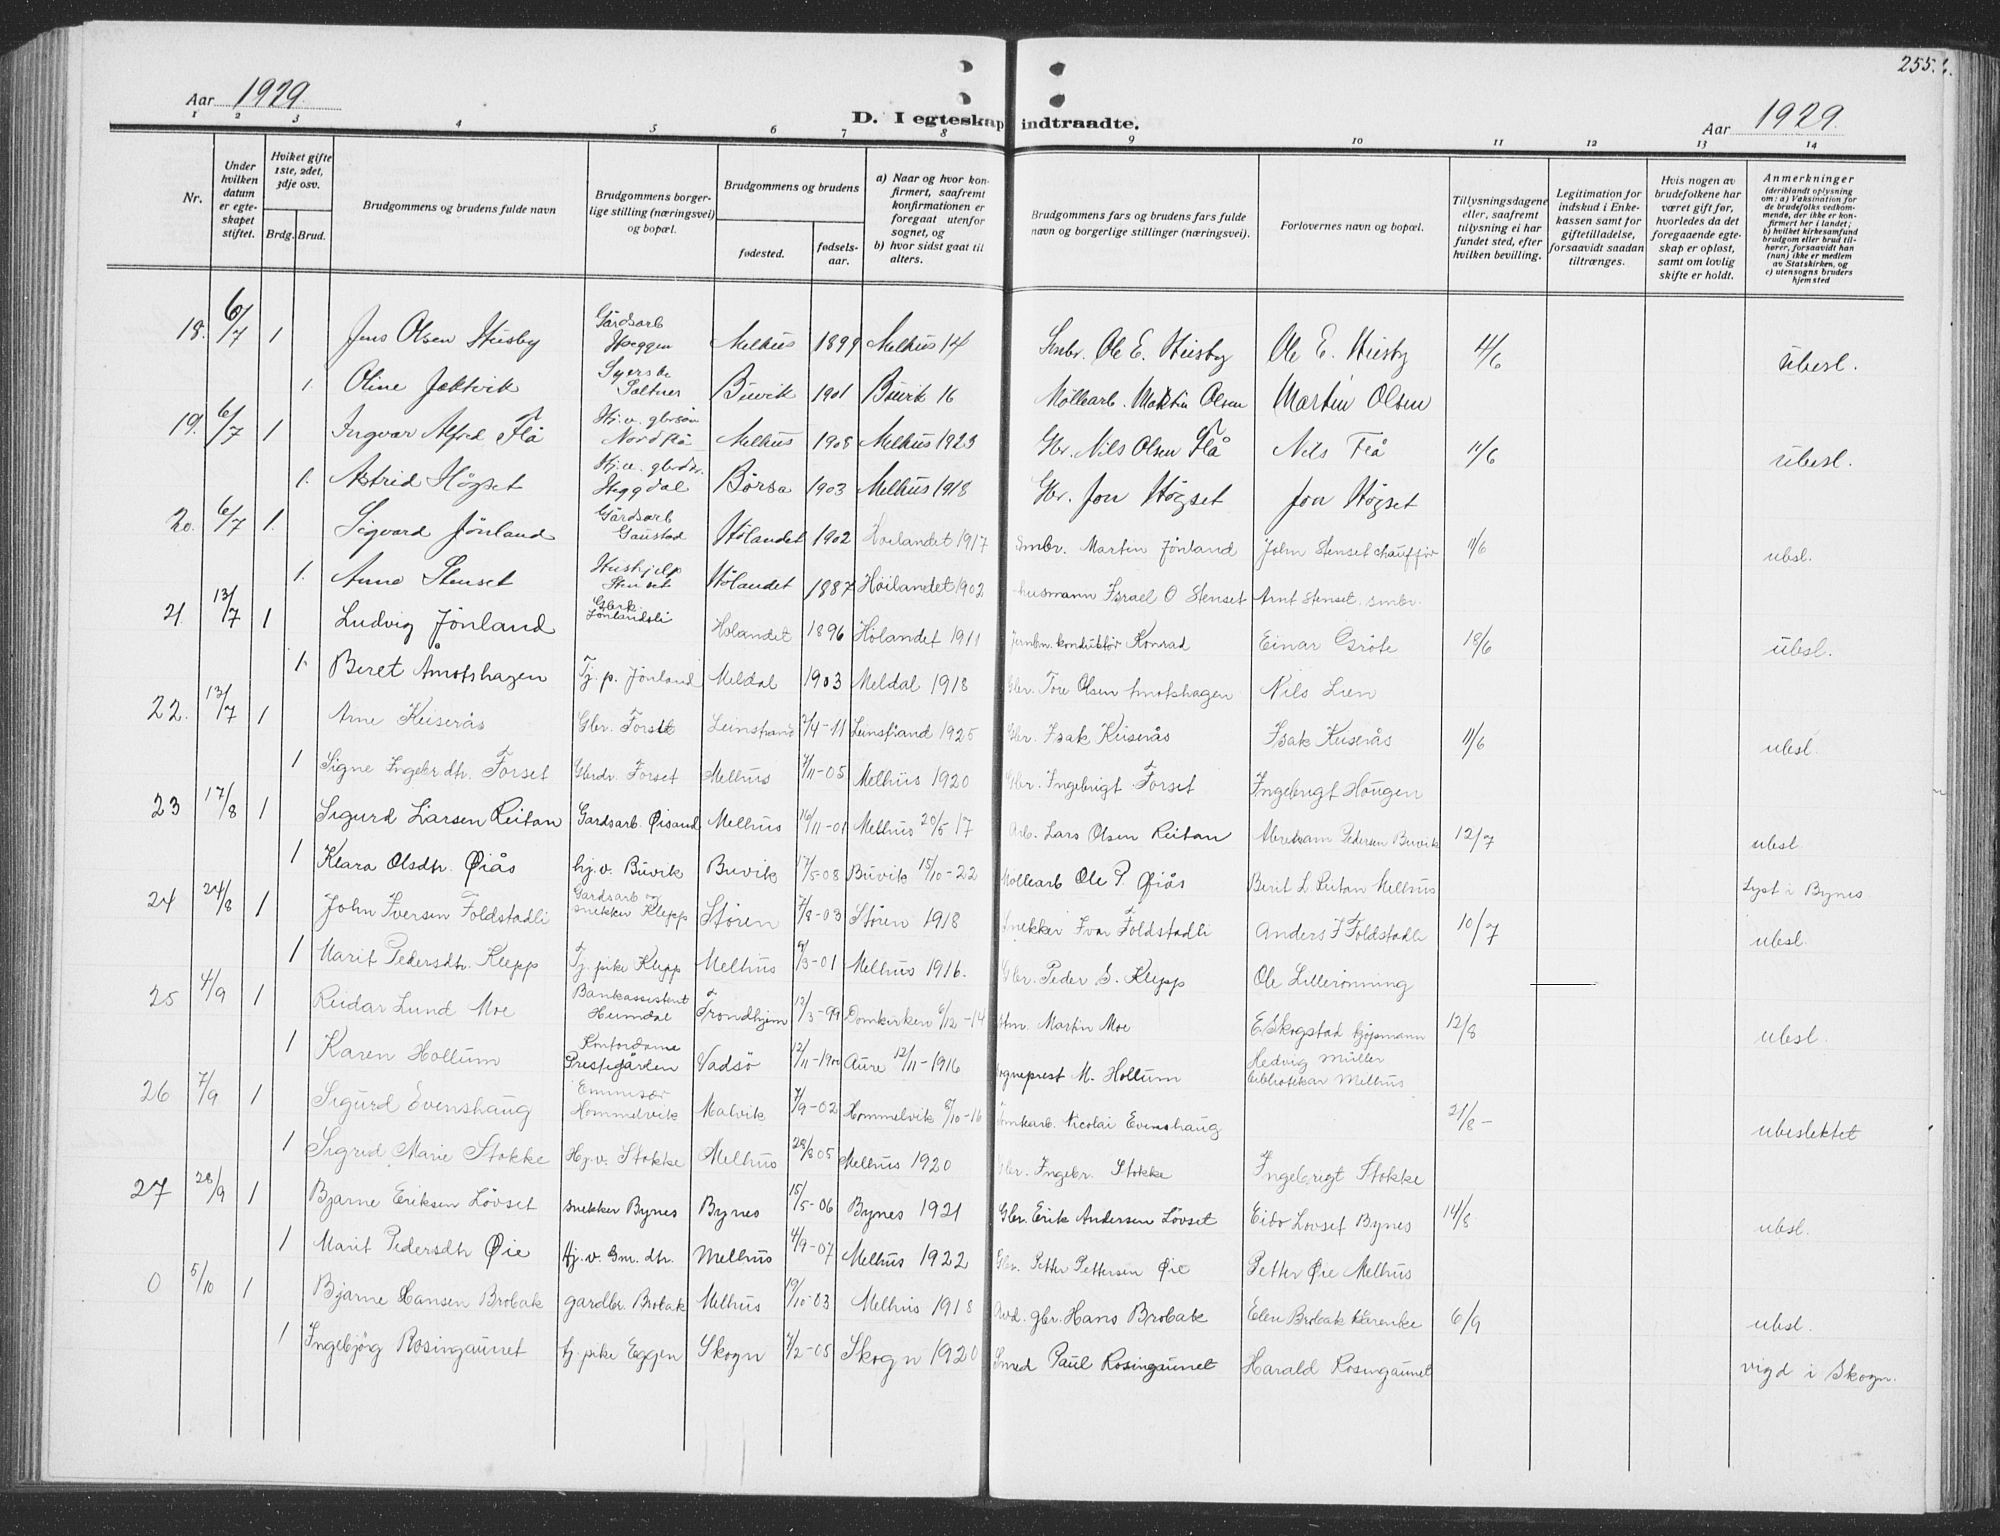 255.
Aar 1929.
D. I egteskap indtraadte.
Aar 1929.
1 2 3 4 5 6 7 8 9 10 11 12 13 14
Nr.
Under hvilken datum er egteskapet stiftet.
Hvilket gifte 1ste, 2det, 3dje osv.
Brdg. Brud.
Brudgommens og brudens fulde navn
Brudgommens borgerlige stilling (næringsvei) og bopæl.
Brudgommens og brudens
fødested.
fødselsaar.
a) Naar og hvor konfirmert, saafremt konfirmationen er foregaat utenfor sognet, og
b) hvor sidst gaat til alters.
Brudgommens fars og brudens fars fulde navn og borgerlige stillinger (næringsvei).
Forlovernes navn og bopæl.
Tillysningsdagene eller, saafremt tillysning ei har fundet sted, efter hvilken bevilling.
Legitimation for indskud i Enkekassen samt for giftetilladelse, forsaavidt saadan tiltrænges.
Hvis nogen av brudefolkene har været gift før, hvorledes da det foregaaende egteskap er opløst, samt om lovlig skifte er holdt.
Anmerkninger
(deriblandt oplysning om: a) Vaksination for de brudefolks vedkommende, der ikke er konfirmert her i landet; b) hvilket kirkesamfund brudgom eller brud tilhører, forsaavidt han (hun) ikke er medlem av Statskirken, og c) utensogns bruders hjemsted
18. 6/7 1 Jens Olsen Husby Gårdsarb Heggen Melhus 1899 Melhus 14 Smbr. Ole E. Husby Ole E. Husby 11/6 ubesl.
1. Oline Jektvik Saltnes Buvik 1901 Buvik 16 Møllearb. Martin Olsen Martin Olsen
19. 6/7 1 Ingvar Alfred Flå Hj.v. gbrsøn Nordflå Melhus 1905 Melhus 1923 Gbr. Nils Olsen Flå Nils Flå 11/6 ubesl.
1. Astrid Høgset Hj.v. gbrdtr. Heggdal Børsa 1903 Melhus 1918 Gbr. Jon Høgset Jon Høgset
20. 6/7 1. Sigvard Jønland Gårdsarb Gaustad Hølandet 1902 Høilandet 1917 Smbr. Martin Jønland John Stenset chauffør 11/6 ubsl.
1. Anna Stenset Hushjelp Stenset Hølandet 1887 Høilandet 1902 husmann Israel O Stenset Arnt Stenset. smbr.
21. 13/7 1 Ludvig Jønland Gbrk. Jønlandsli Hølandet 1896 Hølandet 1911 Jernbn. konduktør Konrad Einar Grøte 18/6 ubsl.
1. Beret Åmotshagen Tj. p. Jønland Meldal 1903 Meldal 1918 Gbr. Tore Olsen Åmotshagen Nils Lien
22. 13/7 1 Arne Kuserås Gbr. Forset Leinstrand 2/4-11 Leinstrand 1925 Gbr. Isak Kuserås Isak Kuserås 11/6 ubsl.
1 Signe Ingebr.dtr. Forset Gbrdr. Forset Melhus 7/11-05 Melhus 1920 Gbr. Ingebrigt Forset Ingebrigt Haugen
23 17/8 1 Sigurd Larsen Reitan Gardsarb. Øisand Melhus 16/11-01 Melhus 20/5 17 Arb. Lars Olsen Reitan Abraham Pedersen Buvik 12/7 ubsl.
1 Klara Olsdtr. Øiås hj.v. Buvik Buvik 17/5-03 Buvik 15/10-22 Møllearb Ole P. Øiås Berit L Reitan Melhus Lyst i Bynes
24 24/8 1 John Iversen Foldstadli Gardsarb og snekker Klepp Støren 7/8-03 Støren 1918 Snekker Ivar Foldstadli Anders I Foldstadli 10/7 ubsl.
1 Marit Pedersdtr. Klepp Tj. pike Klepp Melhus 9/3-01 Melhus 1916. Gbr. Peder S. Klepp Ole Lillerønning
25 4/9 1 Reidar Lund Moe Bankassistent Heimdal Trondhjem 12/3-99 Domkirken 6/12-14 Martin Moe E. Skogstad kjøpmann 12/8 ubesl.
1 Karen Hollum Kontordame Prestegården Vadsø 12/11-1900 Aure 12/11-1916 Sogneprest M. Hollum Hedvig Müller Bibliotekar Melhus
26 7/9 1 Sigurd Evenshaug Emmisær Hommelvik Malvik 7/9-02 Hommelvik 8/10-16 Nicolai Evenshaug 21/8- ubeslektet
1 Sigrid Marie Stokke Hj.v. Stokke Melhus 28/8 05 Melhus 1920 Gbr. Ingebr. Stokke Ingebrigt Stokke
27 28/9 1 Bjarne Eriksen Løvset snekker Bynes Bynes 15/5-06 Bynes 1921 Gbr. Erik Andersen Løvset Løvset Bynes 14/8 ubsl.
1 Marit Pedersdtr Øie Hj.v. Gm. dtr. Melhus 4/9-07 Melhus 1922 Gbr. Petter Pettersen Øie Petter Øie Melhus
0 5/10 1 Bjarne Hansen Brobak gardbr. Brobak Melhus 19/10-03 Melhus 1918 Avd. gbr. Hans Brobak Elen Brobak Lærerinde 6/9 ubsl.
1 Ingebjørg Rosingaunet tj. pike Eggen Skogn 7/2-05 Skogn 1920 Smed Paul Rosingaunet Harald Rosingaunet vigd i Skogn.